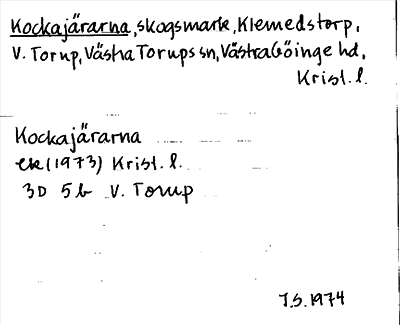 Kockajärarna, skogsmark, Klemedstorp,
V. Torup, Västra Torups sn, Västra Göinge hd,
Krist. l.
Kockajärarna
ek (1973) Krist. l.
3D 5b V. Torup
J.S. 1974